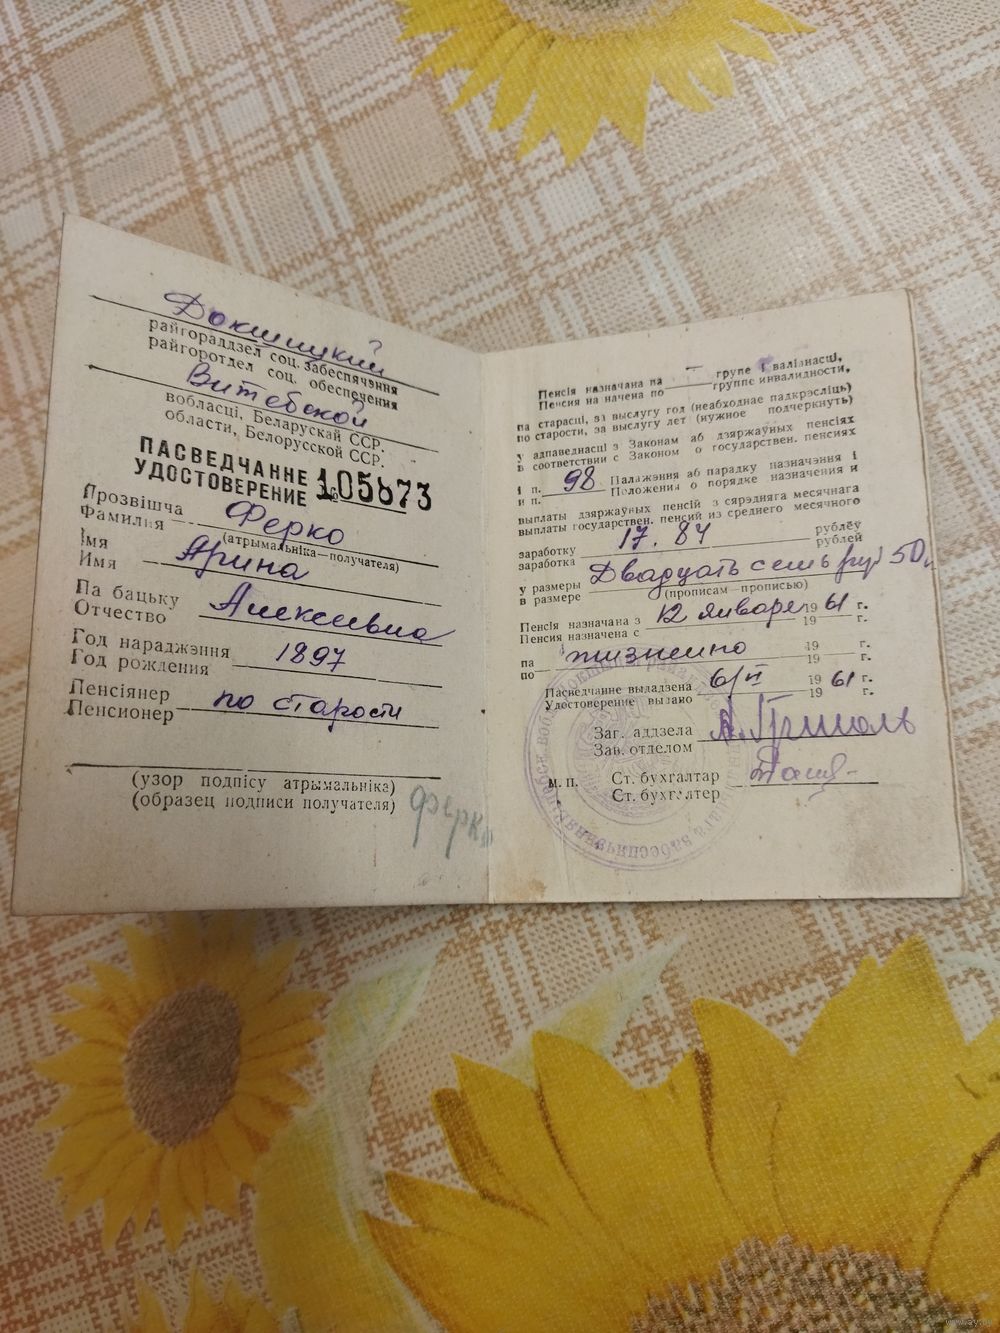 Докшицкий
райгораддзел соц. забеспячэння
райгоротдел соц. обеспечения
Витебской
вобласці, Беларускай ССР.
области, Белорусской ССР.
ПАСВЕДЧАННЕ
УДОСТОВЕРЕНИЕ № 105873
Прозвішча
Фамилия Ферко
(атрымальніка—получателя)
Імя
Имя Арина
Па бацьку
Отчество Алексевна
Год нараджэння
Год рождения 1897
Пенсіянер
Пенсионер по старости
(узор подпісу атрымальніка)
(образец подписи получателя)
Ферко
Пенсія назначана па — групе інвалінасці,
Пенсия на начена по группе инвалидности,
па старасці, за выслугу год (неабходнае падкрэсліць)
по старости, за выслугу лет (нужное подчеркнуть)
у адпаведнасці з Законам аб дзяржаўных пенсіях
в соответствии с Законом о государствен. пенсиях
і п. 98 Палажэння аб парадку назначэння і
и п. Положения о порядке назначения и
выплаты дзяржаўных пенсій з сярэдняга месячнага
выплаты государствен. пенсий из среднего месячного
заработку 17.84 рублёў
заработка рублей
у размеры Двадцать семь руб 50
в размере (прописам—прописью)
Пенсія назначана з 12 января 1961 г.
Пенсия назначена с 19 г.
па пожизненно 19 г.
по 19 г.
Пасведчанне выдадзена 6/II 1961 г.
Удостоверение выдано 19 г.
Заг. аддзела
Зав. отделом
М. П. Ст. бухгалтар
Ст. бухгалтер